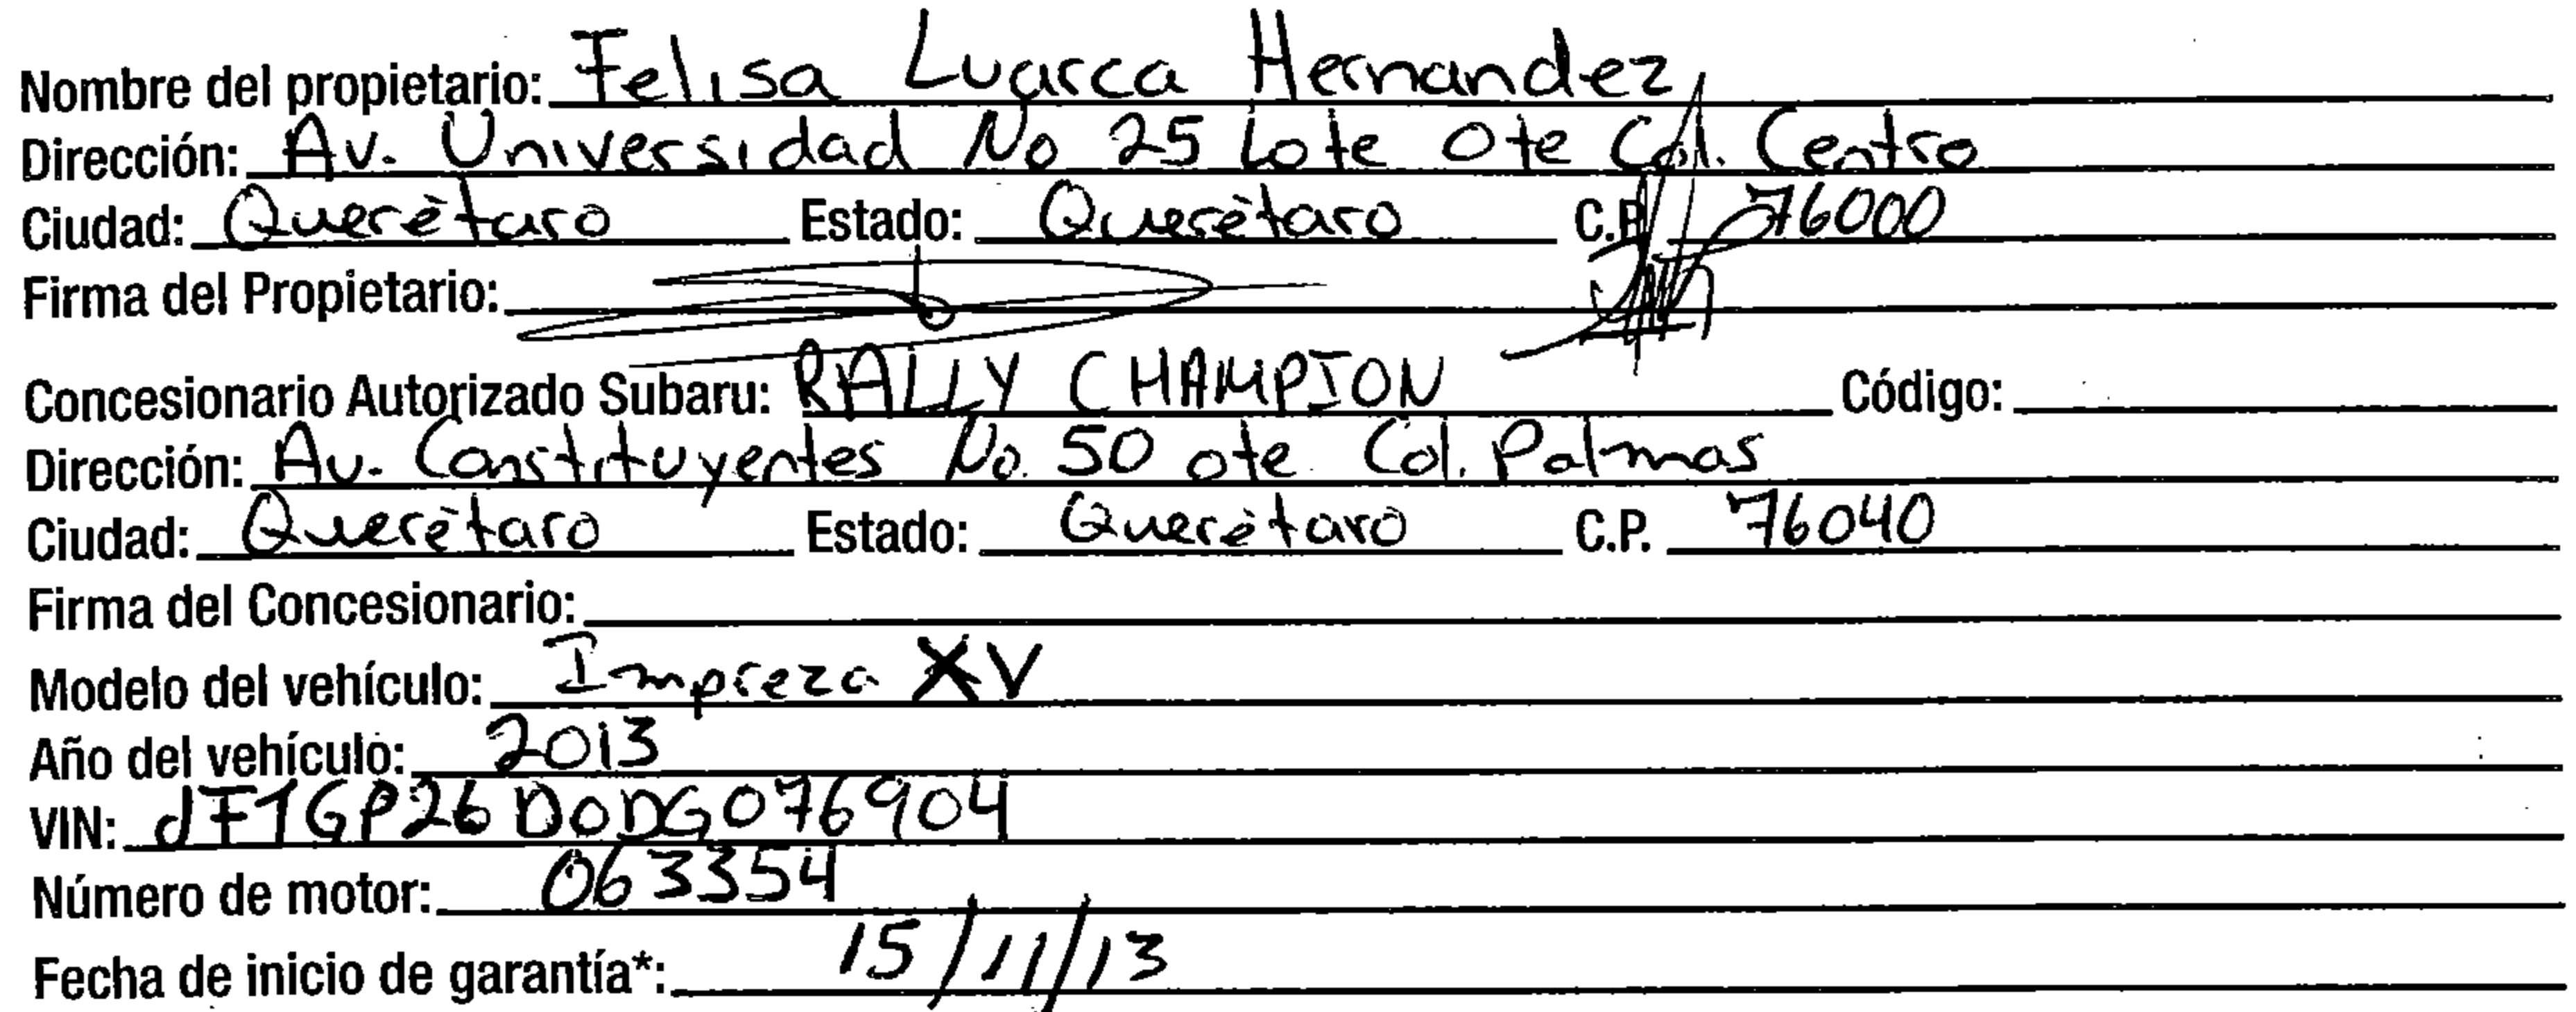 Nombre del propietario: Felisa Luarca Hernandez
Dirección: Av. Universidad No 25 Lote Ote Col. Centro
Ciudad: Querètaro Estado: Querètaro C.P. 76000
Firma del Propietario:
Concesionario Autorizado Subaru: RALLY CHAMPION Código:
Dirección: Av. Constituyentes No. 50 ote Col. Palmas
Ciudad: Querètaro Estado: Querètaro C.P. 76040
Firma del Concesionario:
Modelo del vehículo: Impreza XV
Año del vehículo: 2013
VIN: dF1GP26D0DG076904
Número de motor: 063354
Fecha de inicio de garantía*: 15/11/13